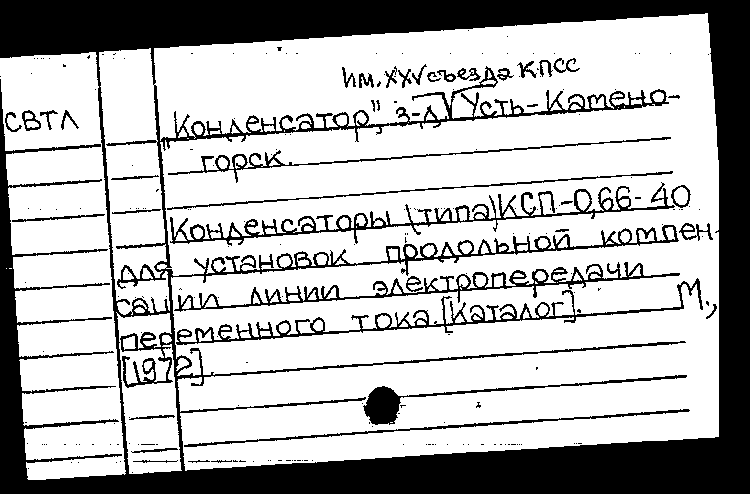 им. XXV съезда КПСС
СВТЛ
„Конденсатор", з-д, Усть-Камено-
горск.
Конденсаторы (типа) КСП-0,66-40
для установок продольной компен-
сации линии электропередачи
переменного тока. [Каталог]. М.,
[1972].